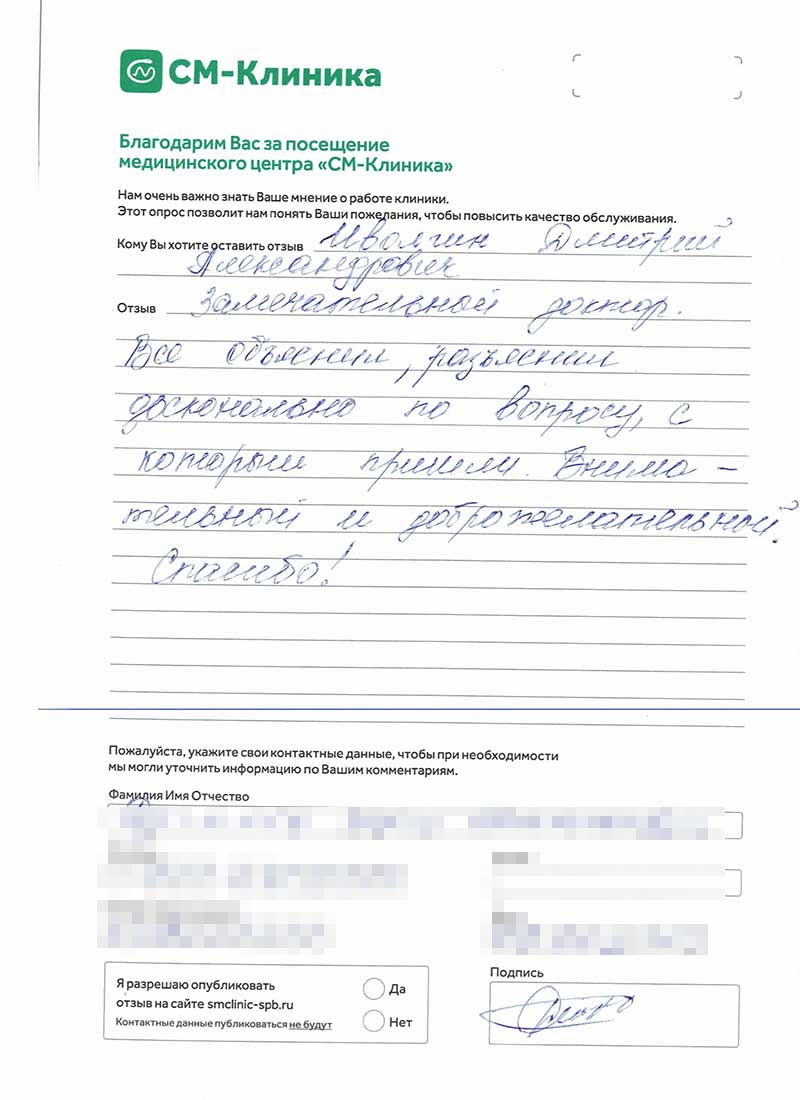 СМ-Клиника
Благодарим Вас за посещение
медицинского центра «СМ-Клиника»
Нам очень важно знать Ваше мнение о работе клиники.
Этот опрос позволит нам понять Ваши пожелания, чтобы повысить качество обслуживания.
Кому Вы хотите оставить отзыв Иволгин Дмитрий
Александрович
Отзыв Замечательный доктор.
Все объяснил, разъяснил
досконально по вопросу, с
которым пришли. Внима-
тельный и доброжелательный.
Спасибо!
Пожалуйста, укажите свои контактные данные, чтобы при необходимости
мы могли уточнить информацию по Вашим комментариям.
Фамилия Имя Отчество
Я разрешаю опубликовать
отзыв на сайте smclinic-spb.ru
Контактные данные публиковаться не будут
Да
Нет
Подпись